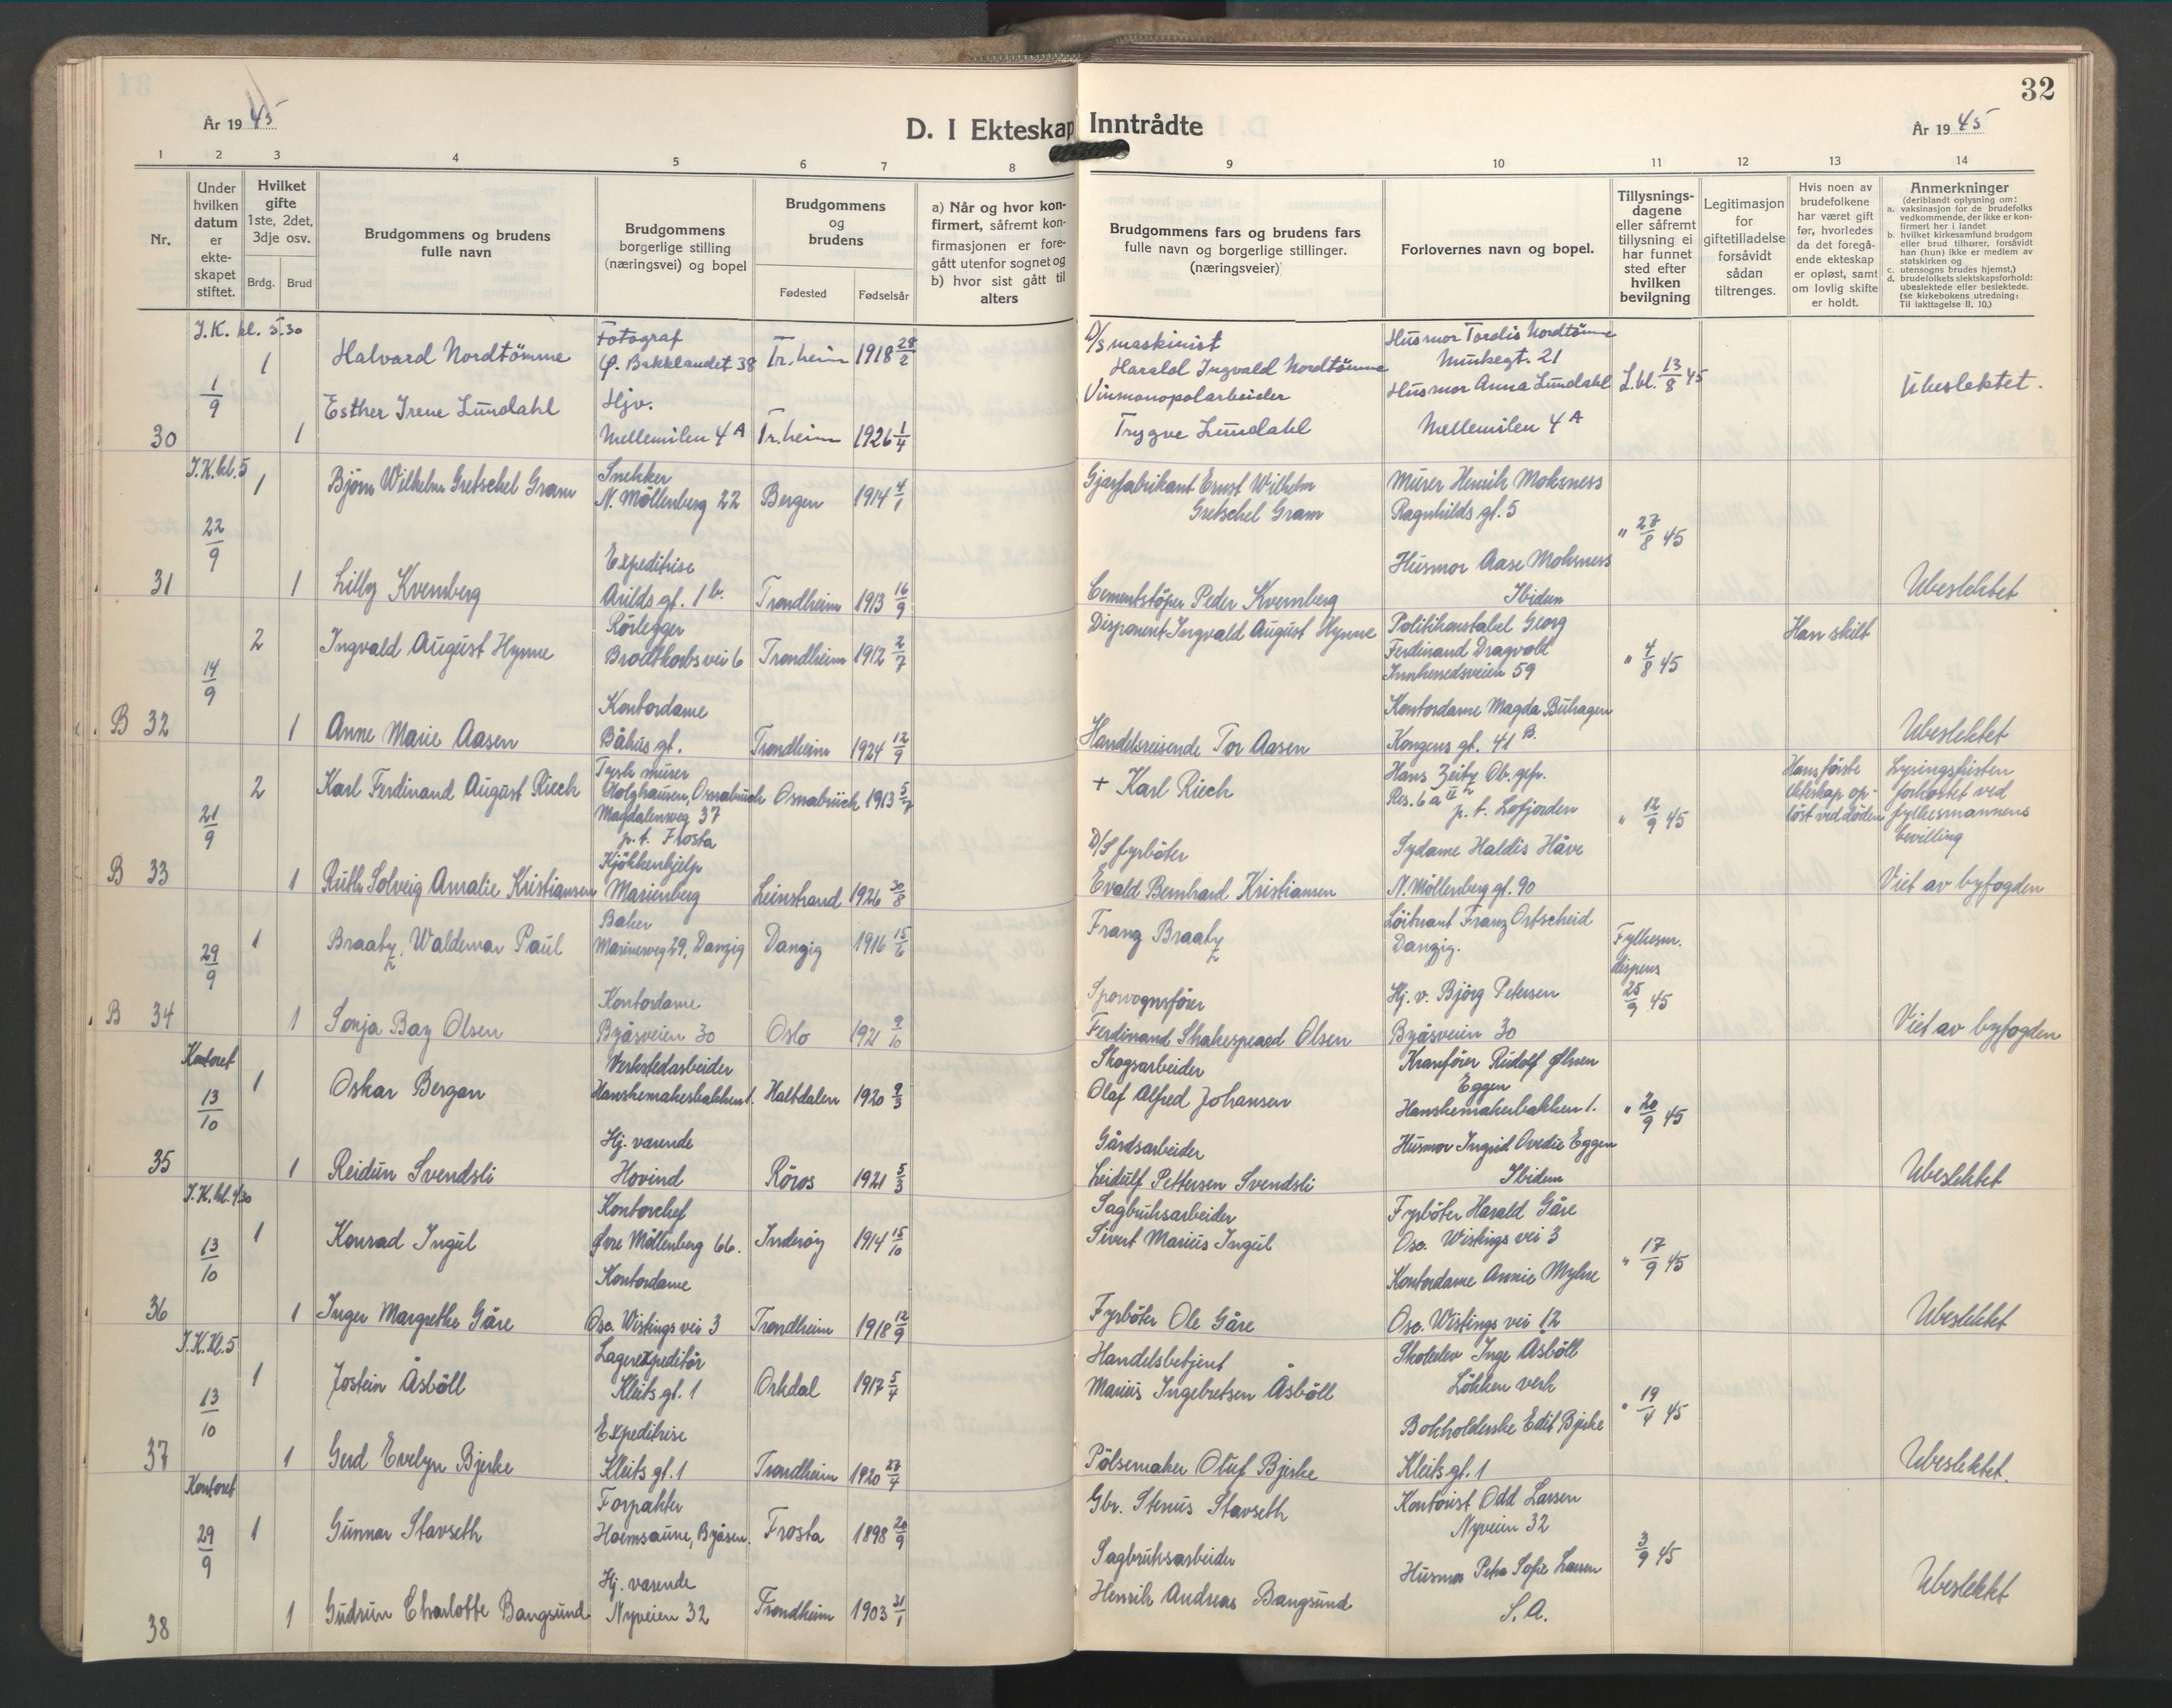 32
År 1945
D. I Ekteskap Inntrådte
År 1945
1 2 3 4 5 6 7 8 9 10 11 12 13 14
Nr.
Under hvilken datum er ekteskapet stiftet.
Hvilket gifte 1ste, 2det, 3dje osv.
Brdg. Brud
Brudgommens og brudens fulle navn
Brudgommens borgerlige stilling (næringsvei) og bopel
Brudgommens og brudens
Fødested Fødselsår
a) Når og hvor konfirmert, såfremt konfirmasjonen er foregått utenfor sognet og
b) hvor sist gått til alters
Brudgommens fars og brudens fars fulle navn og borgerlige stillinger. (næringsveier)
Forlovernes navn og bopel.
Tillysningsdagene eller såfremt tillysning ei har funnet sted efter hvilken bevilgning
Legitimasjon for giftetilladelse forsåvidt sådan tiltrenges.
Hvis noen av brudefolkene har været gift før, hvorledes da det foregående ekteskap er opløst, samt om lovlig skifte er holdt.
Anmerkninger
(deriblandt oplysning om:
a. vaksinasjon for de brudefolks vedkommende, der ikke er konfirmert her i landet
b. hvilket kirkesamfund brudgom eller brud tilhører, forsåvidt han (hun) ikke er medlem av statskirken og
c. utensogns brudes hjemst.)
d. brudefolkets slektskapsforhold: ubeslektede eller beslektede.
(se kirkebokens utredning: Til iakttagelse II. 10.)
I.K. kl. 5.30
30 1/9
1 Halvard Nordtömme
Fotograf
Ø. Bakklandet 38 Tr.heim 1918 28/2
D/s maskinist
Harald Ingvald Nordtömme
Husmor Tordis Nordtömme
Munkegt. 21
L.bl. 13/8 45
Ubeslektet.
1 Esther Irene Lundahl
Hjv.
Mellemilen 4A Tr.heim 1926 1/4
Vinmonopolarbeider
Trygve Lundahl
Husmor Anna Lundahl
Mellemilen 4A
I.K. kl. 5
31 22/9
1 Björn Wilhelm Gretschel Gram
Snekker
N. Möllenberg 22 Bergen 1914 4/1
Gjærfabrikant Ernst Wilhelm
Gretschel Gram
Murer Henrik Moksness
Ragnhilds gt. 5
" 27/8 45
1 Lilly Kvernberg
Expeditrise
Arilds gt. 1 b. Trondheim 1913 16/9
Cementstöper Peder Kvernberg
Husmor Aase Moksness
Ibidem
Ubeslektet
B 32 14/9
2 Ingvald August Hynne
Rörlegger
Brodtkorbs vei 6 Trondheim 1912 2/7
Disponent Ingvald August Hynne
Politikonstabel Georg
Ferdinand Dragvold
Innherredsveien 59
" 4/8 45
Han skilt
1 Anne Marie Aasen
Kontordame
Båhus gt. Trondheim 1924 12/9
Handelsreisende Tor Aasen
Kontordame Magda Buhagen
Kongens gt. 41 B.
Ubeslektet
B 33 21/9
2 Karl Ferdinand August Riech
Tysk murer
Holzhausen, Osnabrück Osnabrück 1913 5/7
Magdalenweg 37
p.t. Frosta
+ Karl Riech
Hans Zeitz Ob. gefr.
Res. 6 a II p.t. Lofjorden
" 12/9 45
Hans første ekteskap opløst ved døden
Lysingsfristen forkortet ved fylkesmannens bevilling
1 Ruth Solveig Amalie Kristiansen
Kjökkenhjelp
Marienberg Leinstrand 1926 30/8
D/S fyrböter
Evald Bernhard Kristiansen
Sydame Haldis Håve
N. Möllenberg gt. 90
Viet av byfogden
B 34 29/9
1 Braatz, Waldemar Paul
Baker
Marineweg 29, Danzig Danzig 1916 15/6
Franz Braatz
Löitnant Franz Ortscheid
Danzig.
Fylkesm.
dispens
25/9 45
1 Sonja Bay Olsen
Kontordame
Byåsveien 30 Oslo 1921 9/10
Sporvognsförer
Ferdinand Shakespeard Olsen
Hj. v. Björg Petersen
Byåsveien 30
Viet av byfogden
Kontoret
35 13/10
1 Oskar Bergan
Verkstedarbeider
Hanskemakerbakken 1. Haltdalen 1920 9/3
Skogsarbeider
Olaf Alfred Johansen
Kranförer Rudolf Ølnen
Eggen
Hanskemakerbakken 1.
" 20/9 45
1 Reidun Svendsli
Hj. værende
Hovind Röros 1921 5/3
Gårdsarbeider
Leidulf Pettersen Svendsli
Husmor Ingrid Ovedie Eggen
Ibidem
Ubeslektet
I.K. kl. 4.30
36 13/10
1 Konrad Ingul
Kontorchef
Øvre Möllenberg 66. Inderøy 1914 15/10
Sagbruksarbeider
Sivert Marius Ingul
Fyrböter Harald Gåre
Osc. Wistings vei 3
" 17/9 45
1 Inger Margrethe Gåre
Kontordame
Osc. Wistings vei 3 Trondheim 1918 12/9
Fyrböter Ole Gåre
Kontordame Annie Myhre
Osc. Wistings vei 12
Ubeslektet
I.K. Kl. 5
37 13/10
1 Jostein Åsböll
Lagerexpeditör
Kleits gt. 1 Orkdal 1917 5/4
Handelsbetjent
Marius Ingebretsen Åsböll
Skoleelev Inge Åsböll
Lökken verk
" 19/4 45
1 Gerd Evelyn Bjerke
Expeditrise
Kleits gt. 1 Trondheim 1920 27/4
Pölsemaker Oluf Bjerke
Bokholderske Edit Bjerke
Kleits gt. 1
Ubeslektet.
Kontoret
38 29/9
1 Gunnar Stavseth
Forpakter
Hoemsaune, Byåsen. Frosta 1898 20/9
Gbr. Stenus Stavseth
Kontorist Odd Larsen
Nyveien 32
3/9 45
1 Gudrun Charlotte Bangsund
Hj. værende
Nyveien 32 Trondheim 1903 21/1
Sagbruksarbeider
Henrik Andreas Bangsund
Husmor Petra Sofie Larsen
S.A.
Ubeslektet